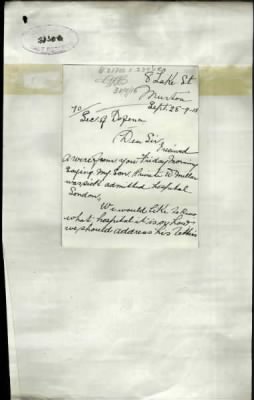 8 Lake St
Murton
Sept. 25-9-18
To
Sec of Defence
Dear Sir,
I recieved
a wire from you Friday Morning
saying my Son Private W Mullen
was sick admitted Hospital
London,
We would like to know
what hospital he is in or how
we should address his letters